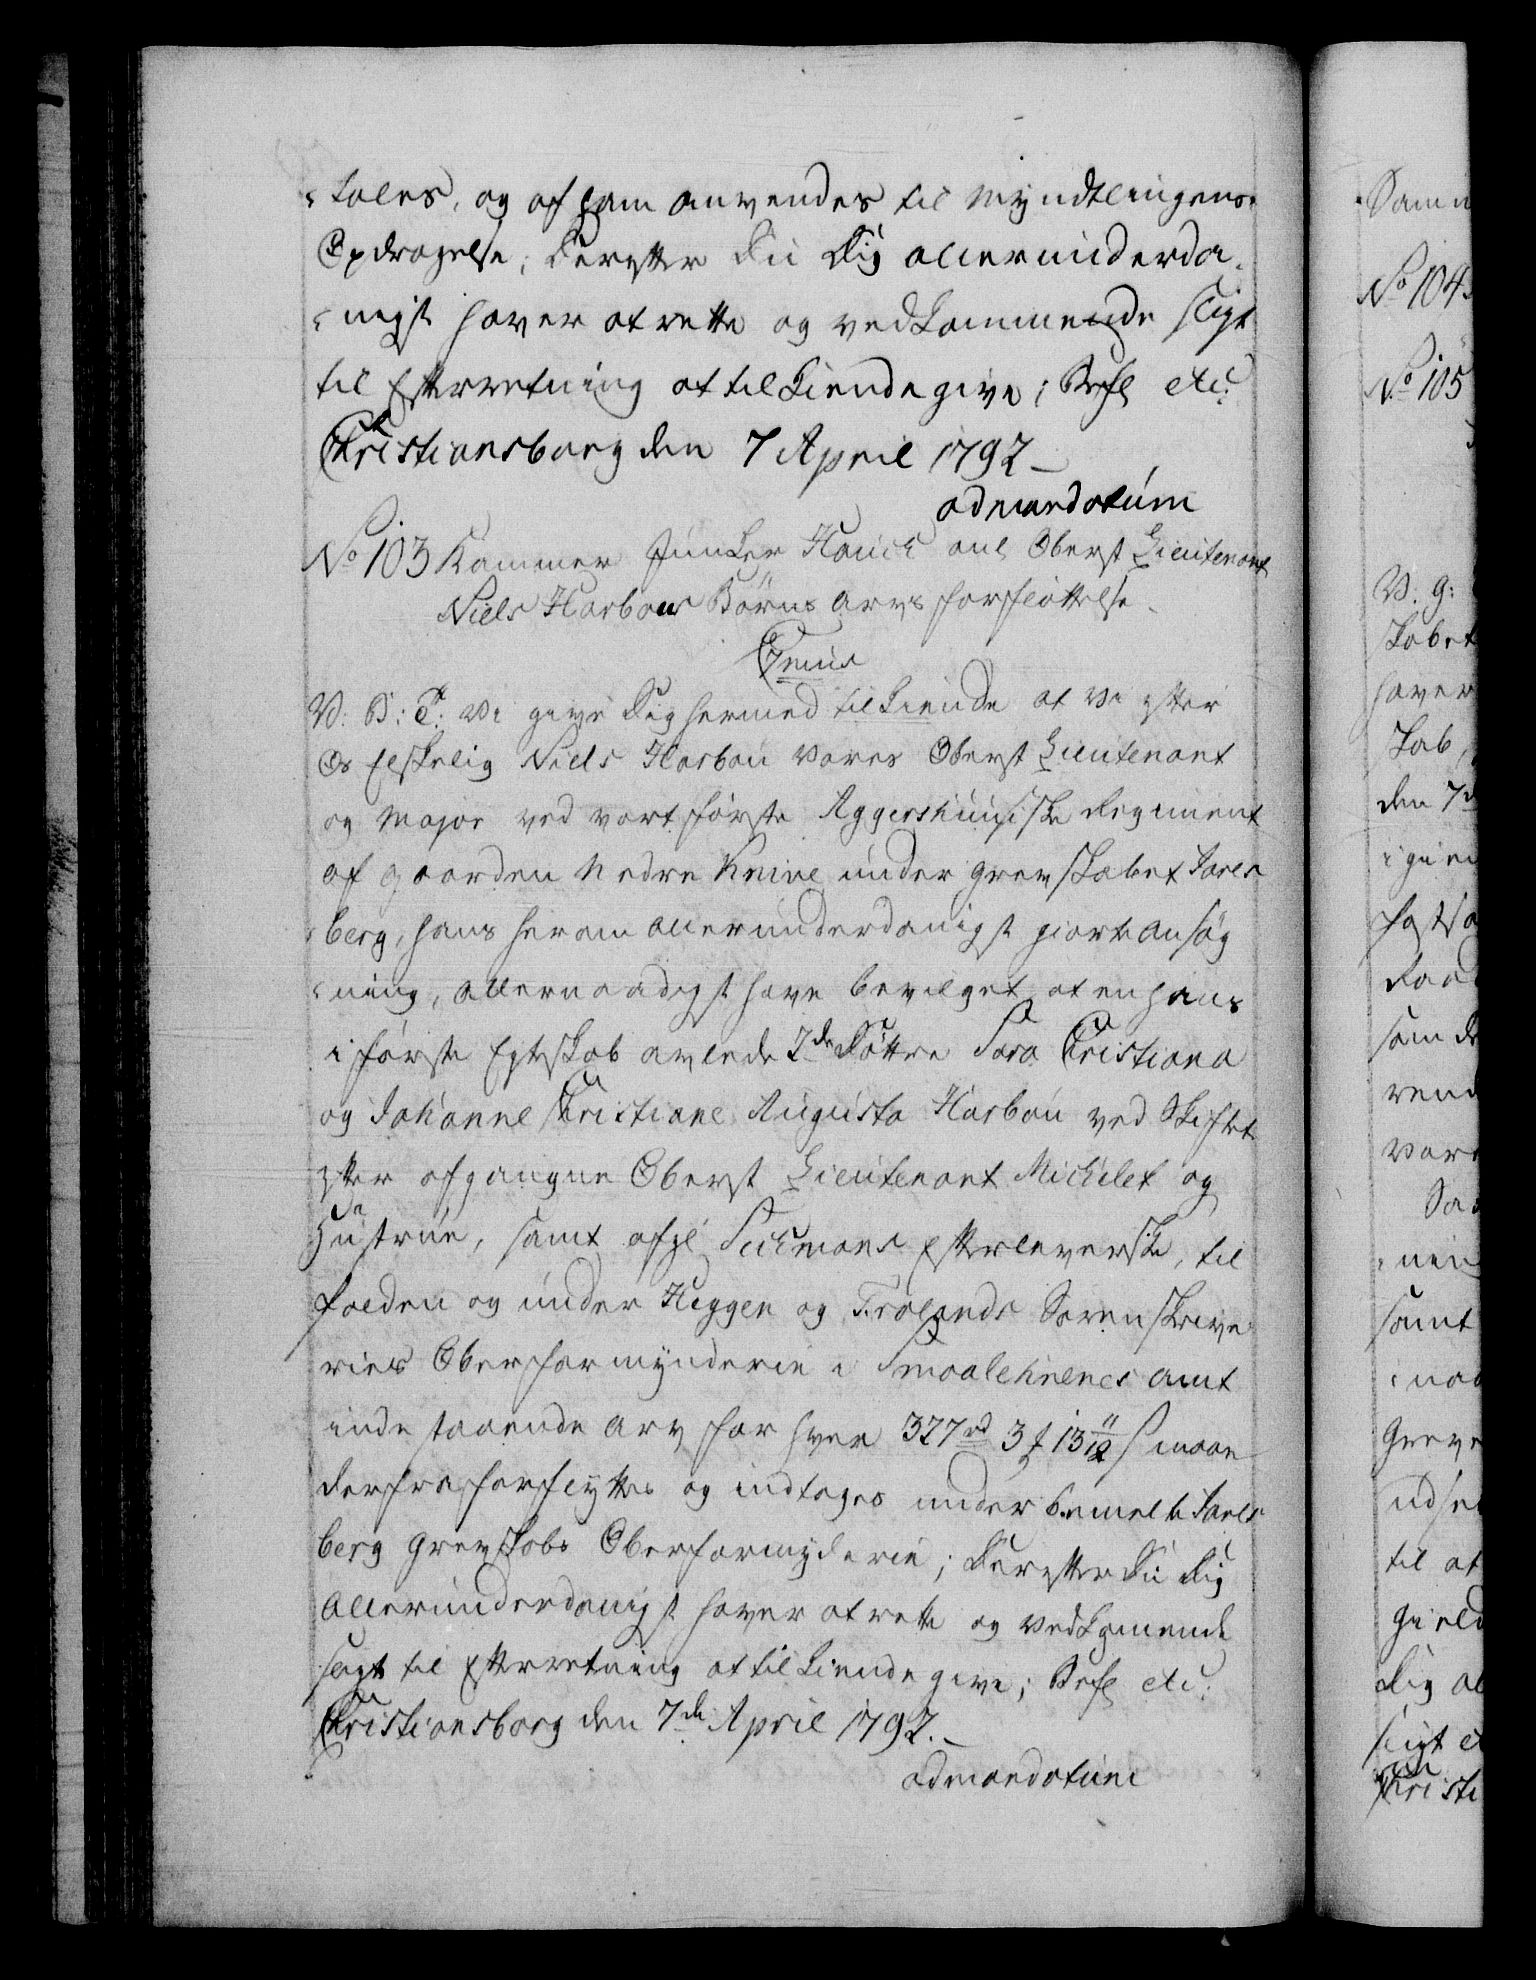 -tales, og af ham anvendes til Myndtlingens
Opdragelse; Derefter Du Dig allerunderda-
-nigst haver at rette og vedkommende sligt
til Efterretning at tilkiende give; Befl etc:
Christiansborg den 7 April 1792_
ad mandatum
No 103 Kammer Junker Hauch anl Oberst Lieutenant
Niels Harbou Börns Arvs forfløttelse.
V. G: T: Vi give Dig hermed tilkiende at Vi efter
Os Elskelig Niels Harbou Vores Oberst Lieutenant
og Major ved vort första Aggershuusiske Regiment
af Gaarden Nedre under Grevskabet Jarls
berg, hans herom allerunderdanigst giorte Ansøg
-ning, allernaadigst have bevilget, at en hans
i första Egteskab avlede 2de Döttre Sara Christiana
og Johanne Christiane Augusta Harbou ved Skiftet
efter afgangne Oberst Lieutenant Michelet og
Hustrue, samt afgl Efterleverske, til
falden og under Heggen og Frølands Sorenskrive
ries Oberformynderie i Smaalehnenes Amt
indestaaende Arv for hver 327 rd 3 ƒ 13 11/12 s maae
derfra forflyttes og indtages under bemelte Jarls
berg Grevskabs Oberformyderie; Derefter Du Dig
allerunderdanigst haver at rette og Vedkommende
sligt til Efterretning at tilkiende give; Befl etc:
Christiansborg den 7de April 1792._
ad mandatum
No 104
No 105
V: G:
skabet
haver
den 7d
samt
Greve
til at
Gield
Dig al
sligt
Christi